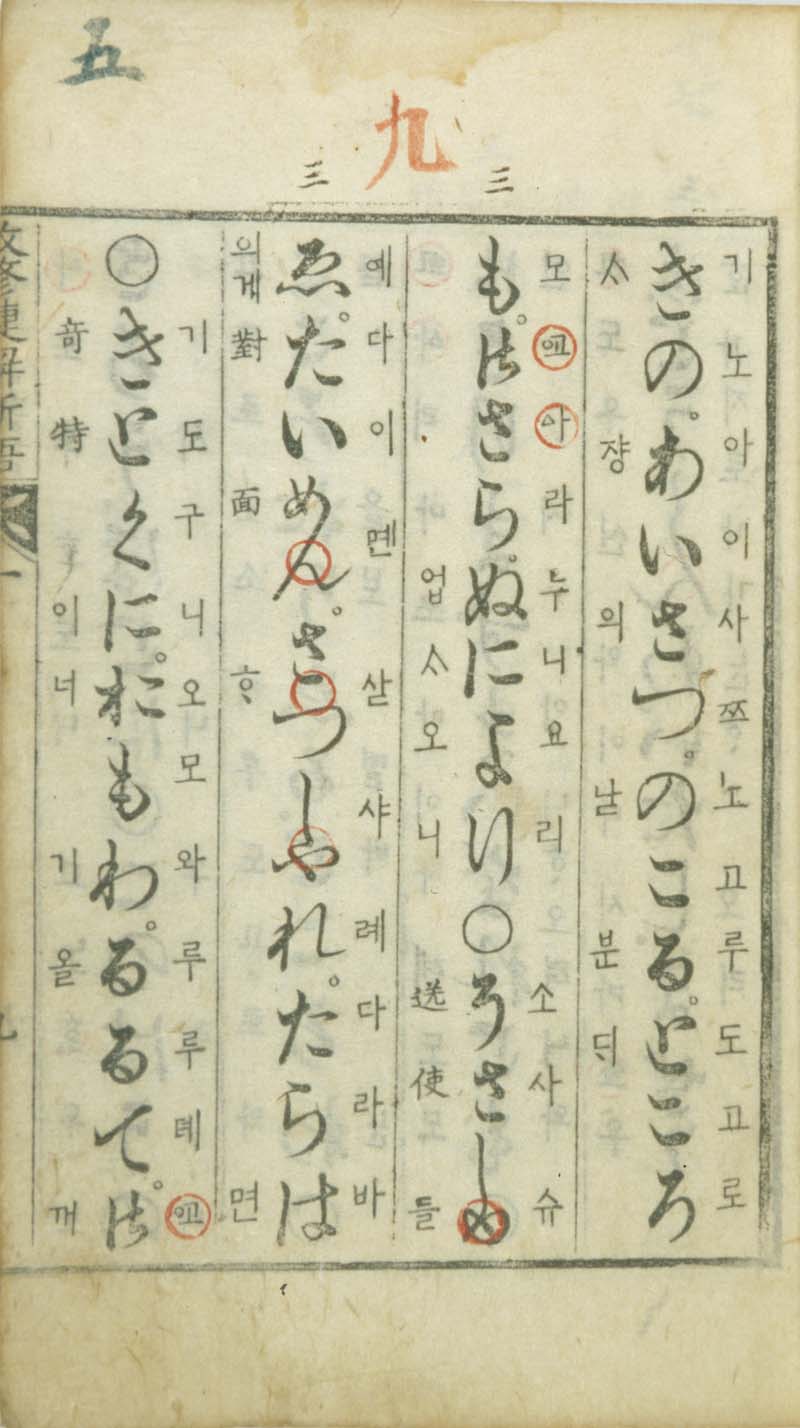 五
九
三 三
기노아이사쯔노고루도고로
きの。あいさつ。のこる。ところ
ᄉᆞ쟝의낟분ᄃᆡ
모 아라누니요리 소사슈
も。御さら。ぬにより〇そさしゆ
업ᄉᆞ오니 送使들
예다이몐살샤례다라바
ゑ。たいめん。さつしやれ。たらは
의게對面ᄒᆞ면
기도구니오모와루루뎨
〇きとくに。おもわ。るるて。御
奇特이너기올깨
改修捷解新語 一
九